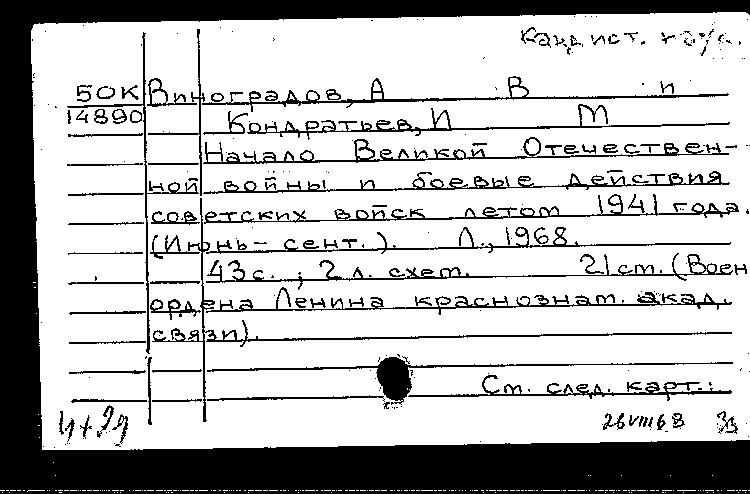 Канд ист.
50К Виноградов, А В и
14890 Кондратьев, И М
Начало Великой Отечествен-
ной войны и боевые действия
советских войск летом 1941 года.
(Июнь - сент.). Л., 1968.
43 с.; 2 л. схем. 21 см. (Воен
ордена Ленина краснознам. акад.
связи).
См. след. карт.:
26 VIII 68